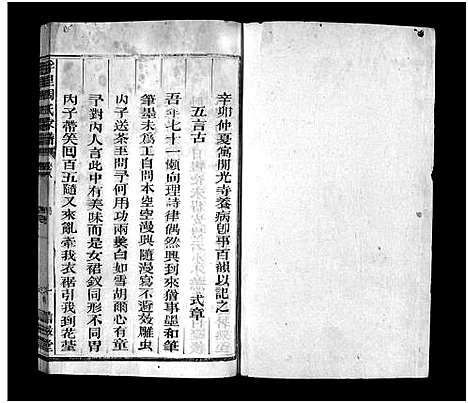 辛卯仲夏寓開光寺養病卽事百韻以記之
五言古
式章
吾年七十一懶向理詩律偶然興到來僧事墨和筆
筆墨未爲工自問本空空漫興隨漫寫不避雕虫
內子送茶至問予何用功兩鬢白如雪胡爾心有童
予對內人言此中有美味而是女裙釵同形不同胃
內子帶笑回百五隨又來亂牽我衣裾引我到花塋